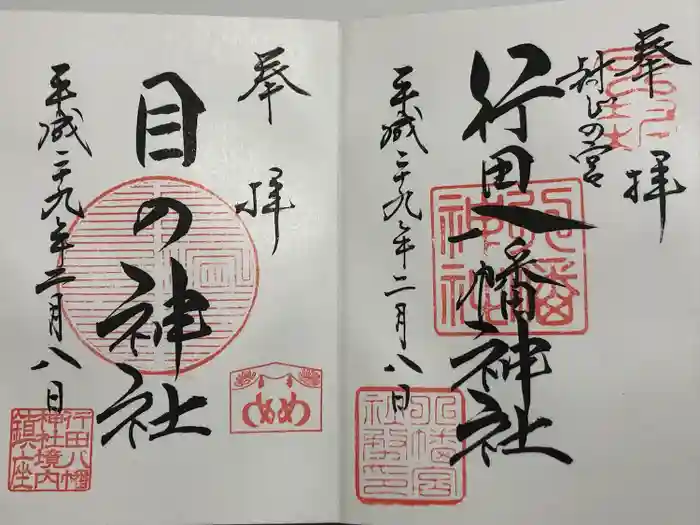 奉拝
封じの宮
行田八幡神社
平成二十九年二月八日
奉拝
目の神社
平成二十九年二月八日
めめ
行田八幡
神社境内
鎮座